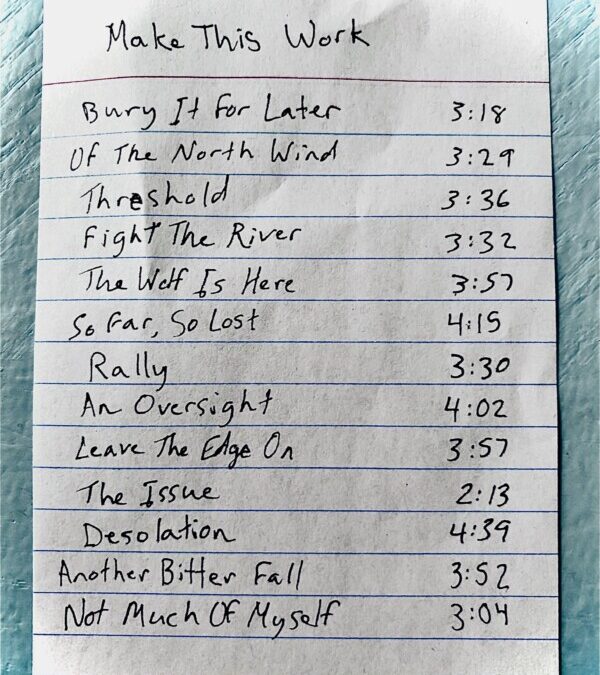 Make This Work
Bury It For Later 3:18
Of The North Wind 3:29
Threshold 3:36
Fight The River 3:32
The Wolf Is Here 3:57
So Far, So Lost 4:15
Rally 3:30
An Oversight 4:02
Leave The Edge On 3:57
The Issue 2:13
Desolation 4:39
Another Bitter Fall 3:52
Not Much Of Myself 3:04